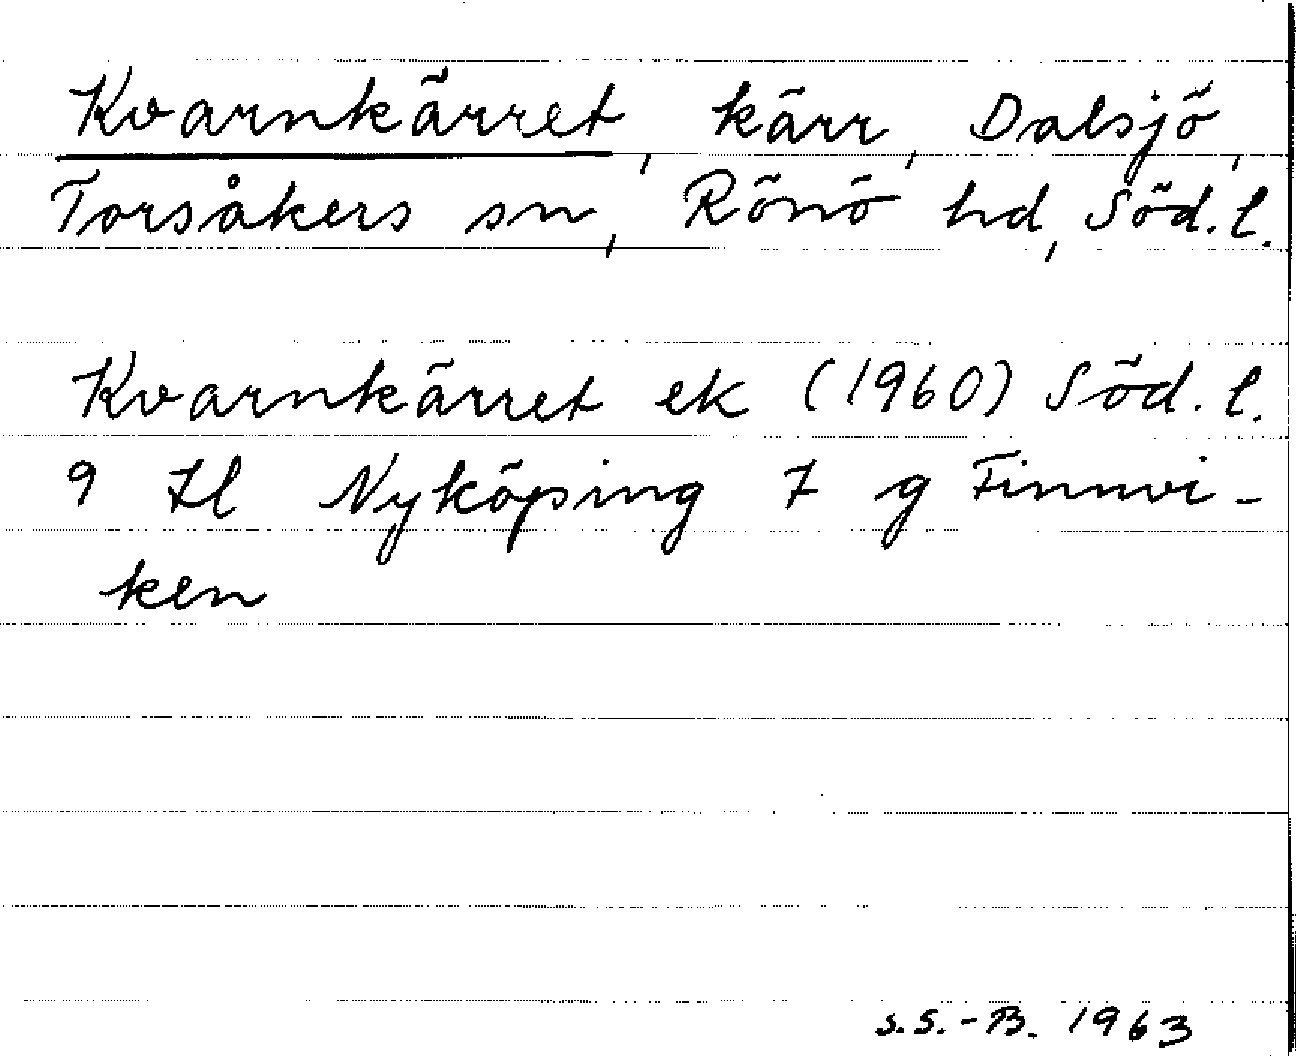 Kvarnkärret, kärr, Dalsjö,
Torsåkers sn, Rönö hd, Söd. l.
Kvarnkärret ek (1960) Söd. l.
9 Il Nyköping 7 g Finnvi-
ken
S.S.-B. 1963